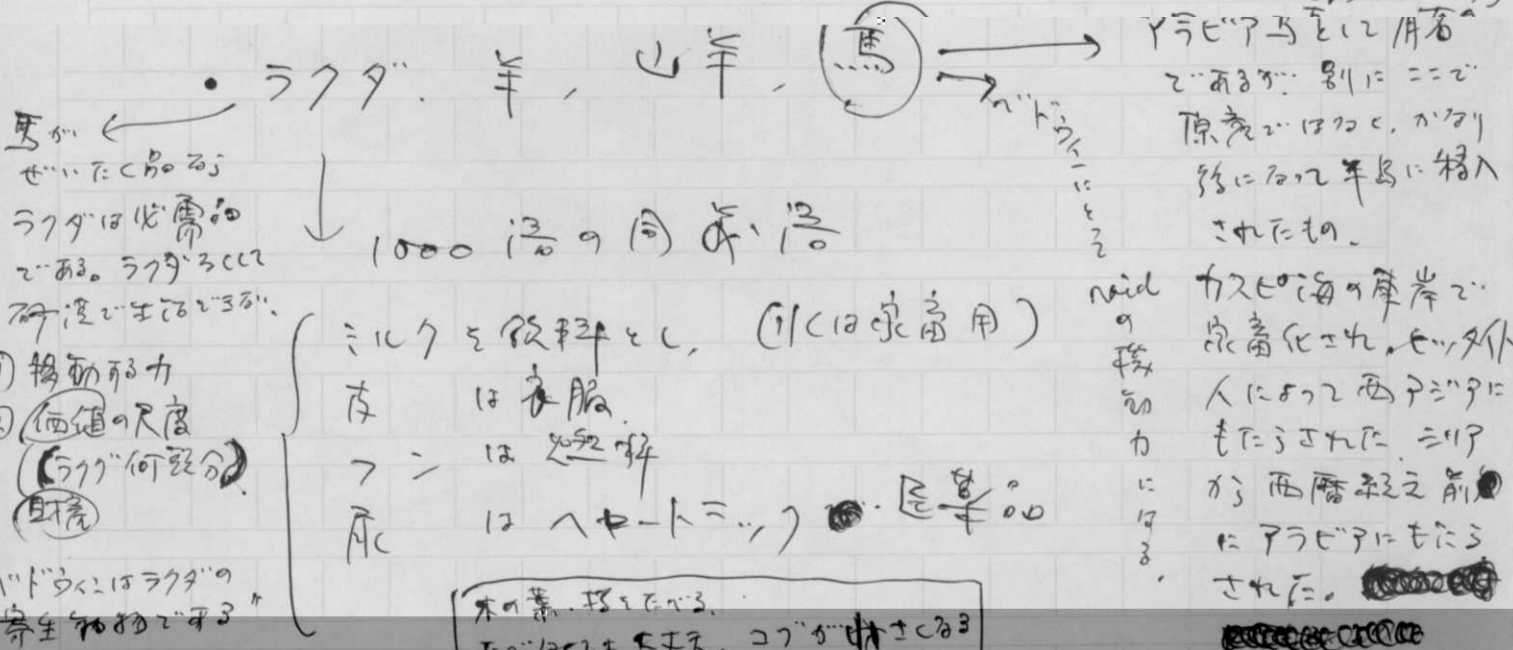 ・ラクダ、羊、山羊、馬
馬が
ぜいたく品なら
ラクダは必需品
である。ラクダなくして
砂漠で生活できない、
移動する力
価値の尺度
(ラクダ何頭分)
財産
ベドウィンはラクダの
寄生動物である"
1000
ミルクを飲料とし、(水は家畜用)
皮は衣服、
フンは燃料
尿はヘヤートニック・医薬品
木の葉、
コブが小さくなる
ベドウィンにとって
raidの機動力になる。
アラビア馬として有名
であるが、別にここで
原産ではなく、かなり
後になって半島に移入
されたもの、
カスピ海の東岸で
家畜化され、ヒッタイト
人によって西アジアに
もたらされた、シリア
から西暦紀元前
にアラビアにもたら
された。